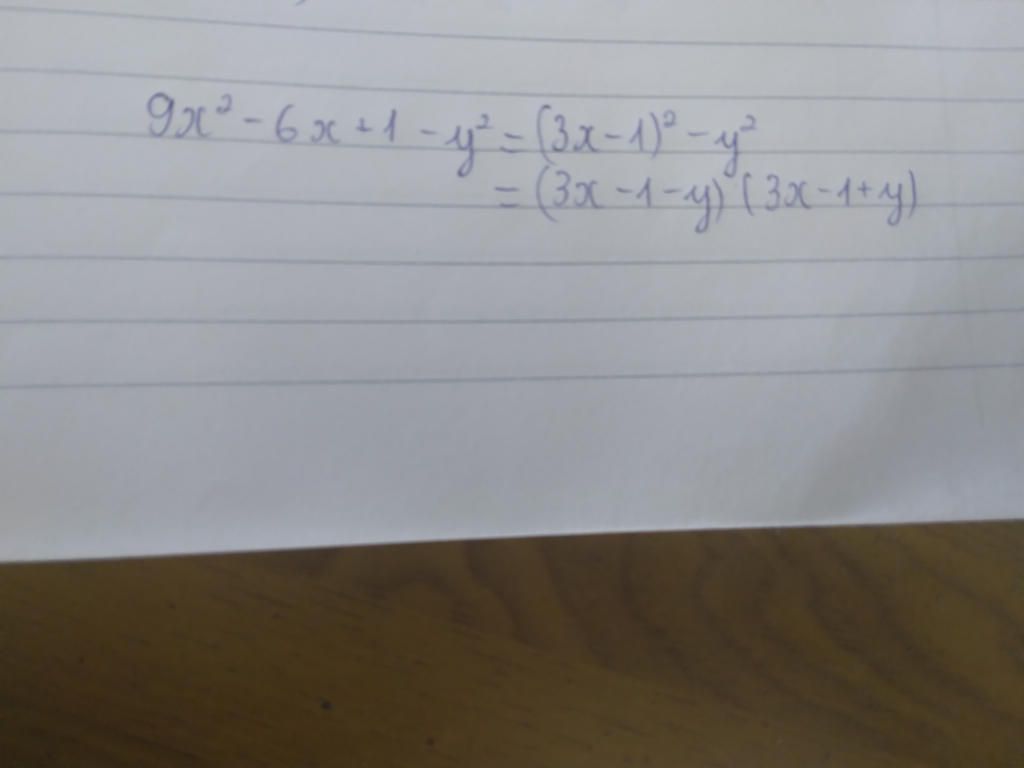 9x² - 6x + 1 - y² = (3x - 1)² - y²
= (3x - 1 - y) (3x - 1 + y)